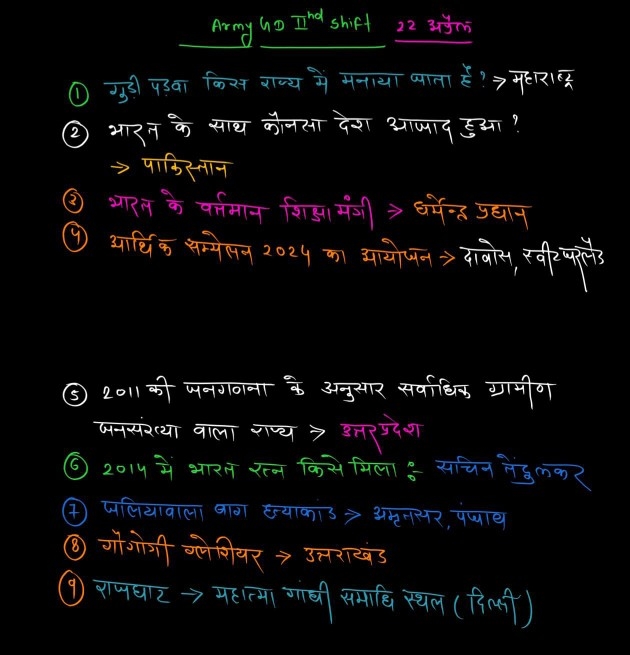 Army GD IInd shift 22 अप्रैल
① गुड़ी पड़वा किस राज्य में मनाया जाता है? → महाराष्ट्र
② भारत के साथ कौनसा देश आजाद हुआ?
→ पाकिस्तान
③ भारत के वर्तमान शिक्षा मंत्री → धर्मेन्द्र प्रधान
④ आर्थिक सम्मेलन 2024 का आयोजन → दावोस, स्वीटजरलैंड
⑤ 2011 की जनगणना के अनुसार सर्वाधिक ग्रामीण
जनसंख्या वाला राज्य → उत्तरप्रदेश
⑥ 2014 में भारत रत्न किसे मिला :- सचिन तेंदुलकर
⑦ जलियावाला बाग हत्याकांड → अमृतसर, पंजाब
⑧ गौगोत्री ग्लेशियर → उत्तराखंड
⑨ राजघाट → महात्मा गांधी समाधि स्थल (दिल्ली)